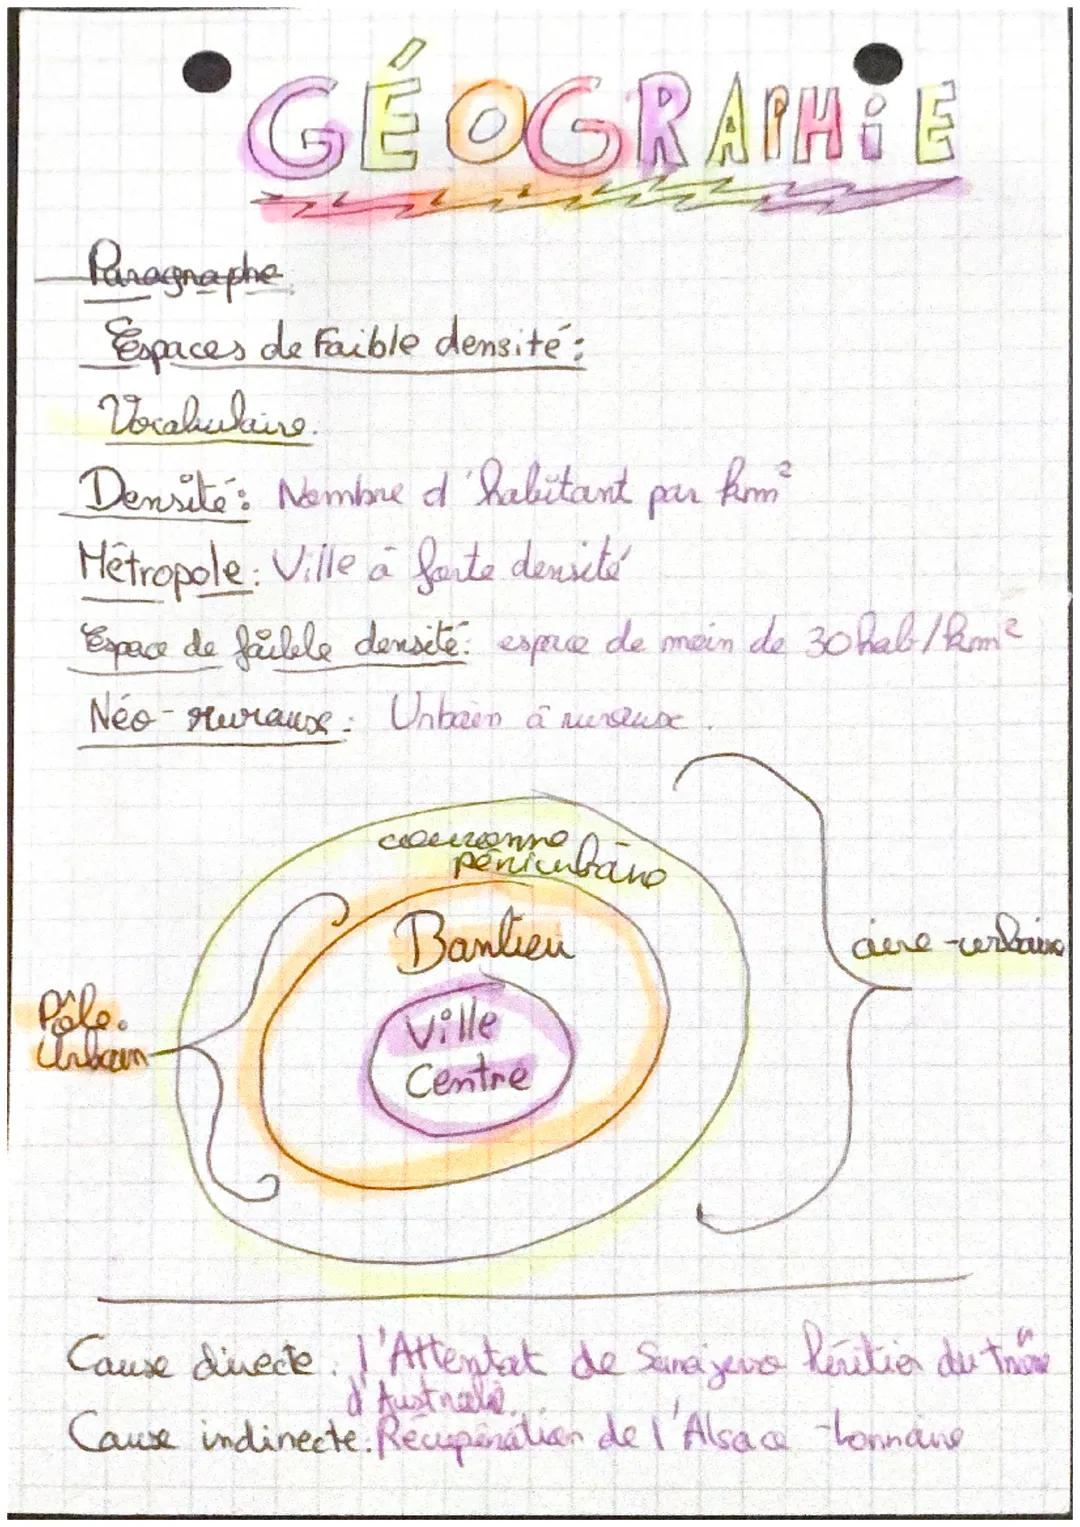 GÉOGRAPHIE
Paragraphe
Espaces de Faible densité :
Vocabulaire.
Densité : Nombre d'habitant par km²
Métropole : Ville à forte densité
Espace de faible densité : espace de moin de 30 hab/km²
Néo-ruraux : Urbain à ruraux.
couronne
périurbaine
Banlieu
aire-urbaine
Pôle.
Urbain
Ville
Centre
Cause directe : l'Attentat de Sarajevo héritier du trône
d'Australie.
Cause indirecte : Récupération de l'Alsace-lorraine